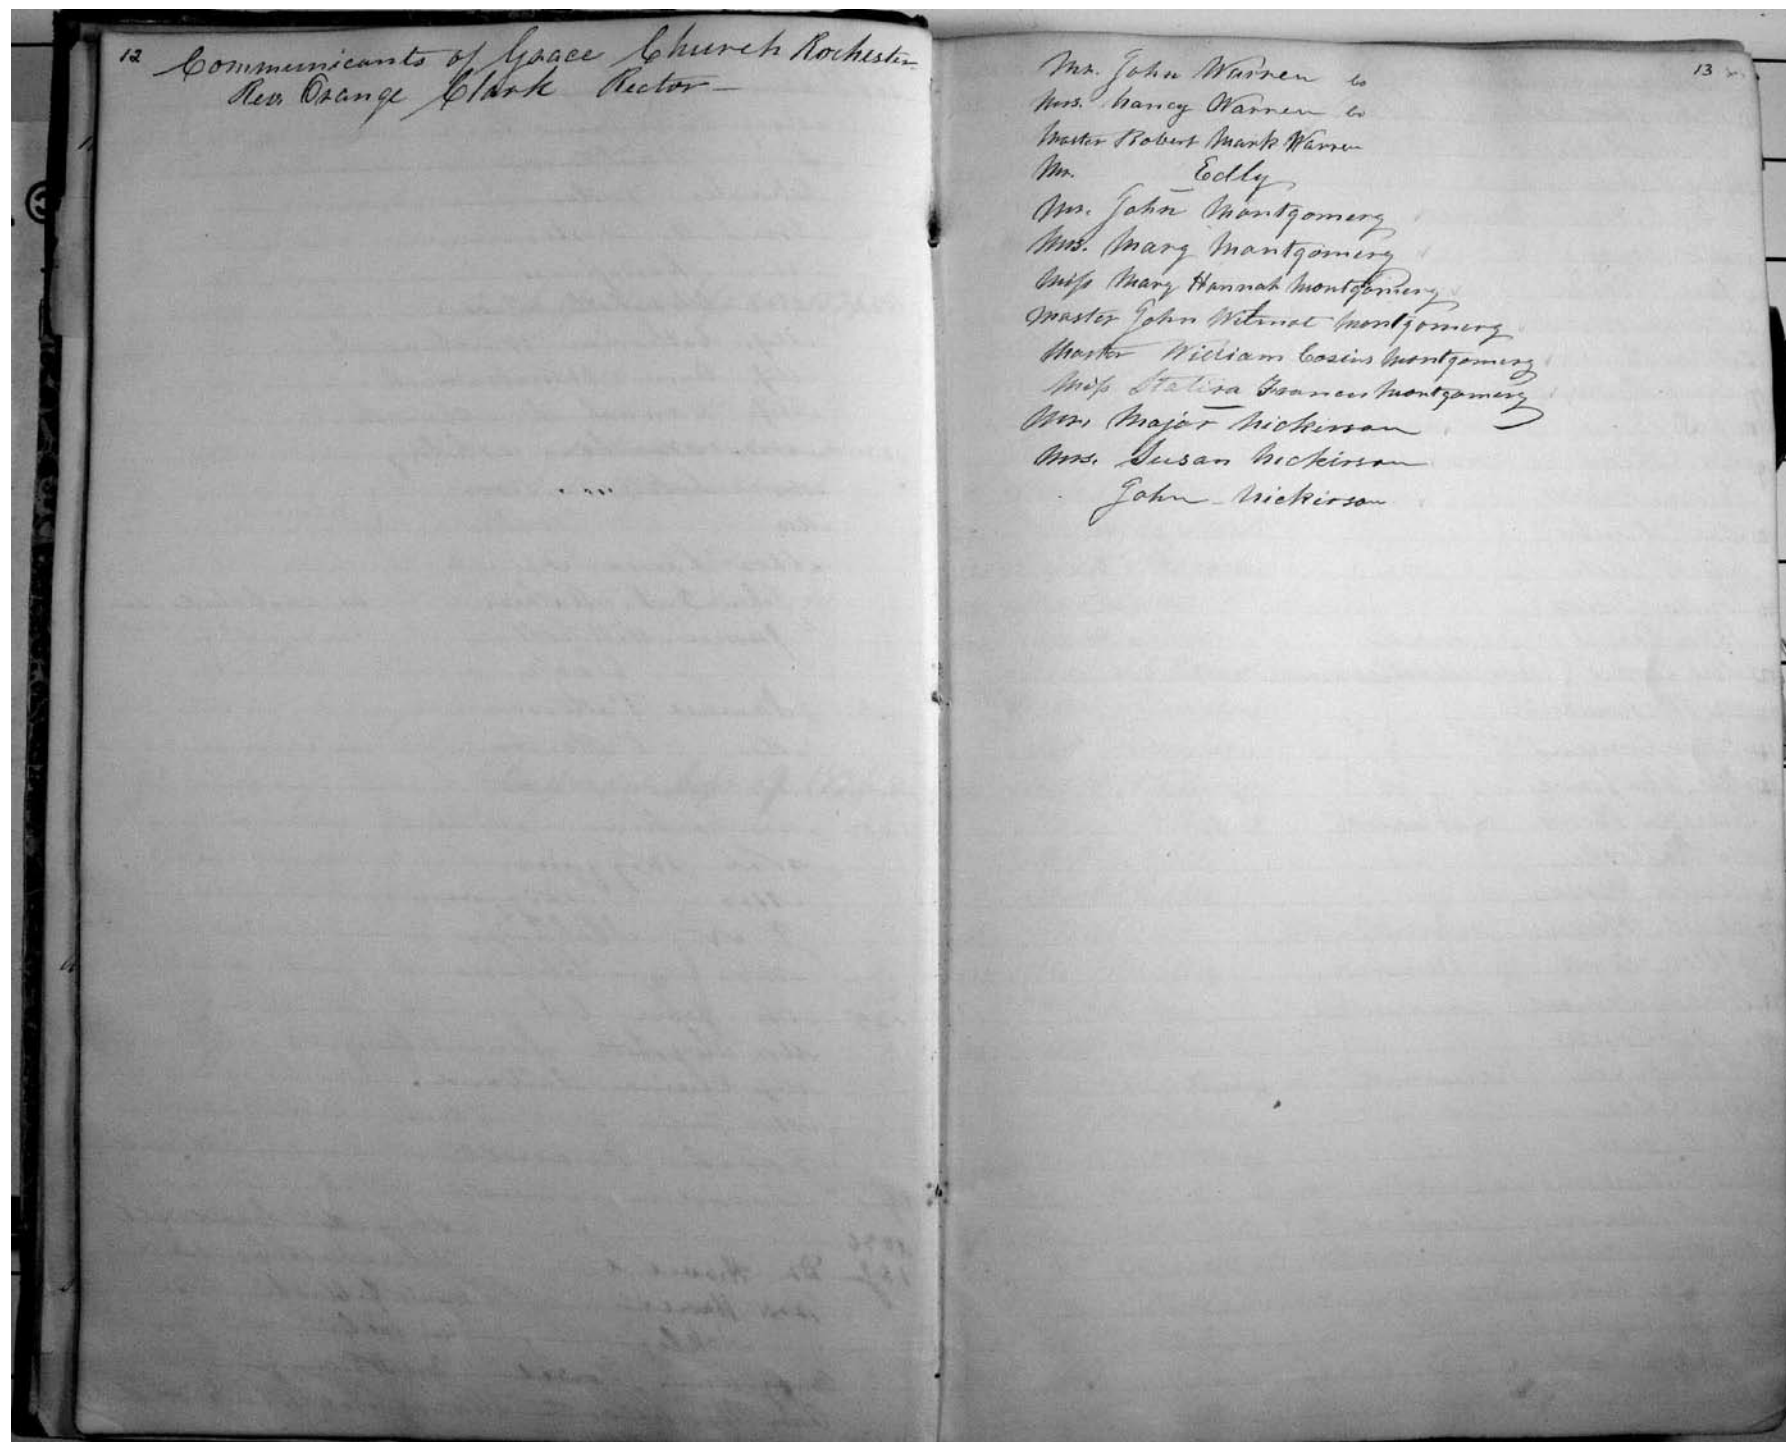 12 Communicants of Grace Church Rochester
Rev Orange Clark Rector —
13
Mr. John Warren Co
Mrs. Nancy Warren Co
Master Robert Mark Warren
Mr. Edly
Mr. John Montgomery
Mrs. Mary Montgomery
Miss Mary Hannah Montgomery
Master John Wilmot Montgomery
Master William Montgomery
Miss Statira Frances Montgomery
Mr. Major Nickerson
Mrs. Susan Nickerson
John Nickerson